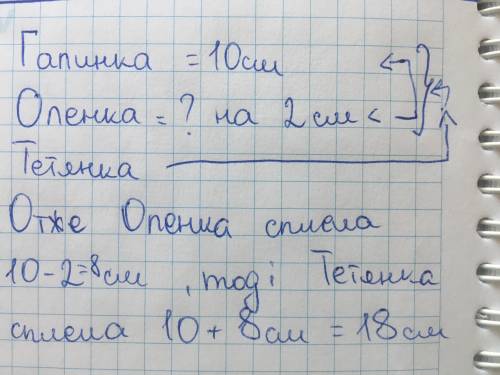 Галинка = 10см
Оленка = ? на 2 см <
Тетянка
Отже Оленка сплела
10-2=8см , тоді Тетянка
сплела 10 + 8см = 18см